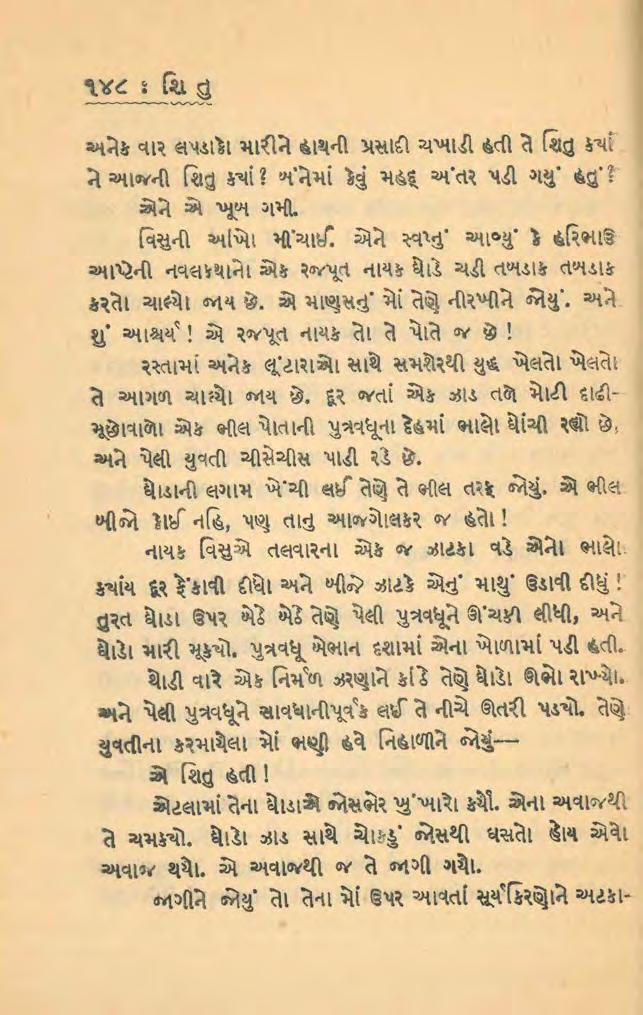 ૧૪૮ : શિ તુ
અનેક વાર લપડાકો મારીને હાથની પ્રસાદી ચખાડી હતી તે શિતુ કયાં
ને આજની શિતુ કયાં? બંનેમાં કેવું મહદ્ અંતર પડી ગયું હતું?
એને એ ખૂબ ગમી.
વિસુની આંખો મીંચાઈ. એને સ્વપ્નું આવ્યું કે હરિભાઉ
આપ્ટેની નવલકથાનો એક રજપૂત નાયક ઘોડે ચડી તબડાક તબડાક
કરતો ચાલ્યો જાય છે. એ માણસનું મોં તેણે નીરખીને જોયું. અને
શું આશ્ચર્ય! એ રજપૂત નાયક તો તે પોતે જ છે!
રસ્તામાં અનેક લૂંટારાઓ સાથે સમશેરથી યુદ્ધ ખેલતો ખેલતો
તે આગળ ચાલ્યો જાય છે. દૂર જતાં એક ઝાડ તળે મોટી દાઢી-
મૂછોવાળો એક ભીલ પોતાની પુત્રવધૂના દેહમાં ભાલો ઘોંચી રહ્યો છે,
અને પેલી યુવતી ચીસેચીસ પાડી રડે છે.
ઘોડાની લગામ ખેંચી લઈ તેણે તે ભીલ તરફ જોયું. એ ભીલ
બીજો કોઈ નહિ, પણ તાનુ આજગોલકર જ હતો!
નાયક વિસુએ તલવારના એક જ ઝાટકા વડે એનો ભાલો
કયાંય દૂર ફેંકાવી દીધો અને બીજે ઝાટકે એનું માથું ઉડાવી દીધું!
તુરત ઘોડા ઉપર બેઠે બેઠે તેણે પેલી પુત્રવધૂને ઊંચકી લીધી, અને
ઘોડો મારી મૂકયો. પુત્રવધૂ બેભાન દશામાં એના ખોળામાં પડી હતી.
થોડી વારે એક નિર્મળ ઝરણાને કાંઠે તેણે ઘોડો ઊભો રાખ્યો.
અને પેલી પુત્રવધૂને સાવધાનીપૂર્વક લઈ તે નીચે ઊતરી પડયો. તેણે
યુવતીના કરમાયેલા મોં ભણી હવે નિહાળીને જોયું—
એ શિતુ હતી!
એટલામાં તેના ઘોડાએ જોસભેર ખુંખારો કર્યો. એના અવાજથી
તે ચમકયો. ઘોડો ઝાડ સાથે ચોકડું જોસથી ઘસતો હોય એવો
અવાજ થયો. એ અવાજથી જ તે જાગી ગયો.
જાગીને જોયું તો તેના મોં ઉપર આવતાં સૂર્યકિરણોને અટકા-